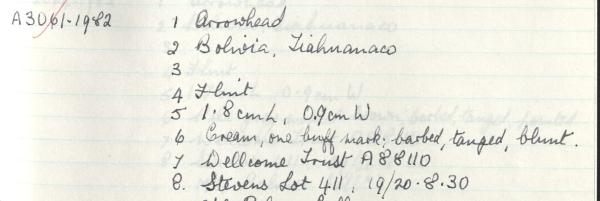 A3061-1982 1 Arrowhead
2 Bolivia, Tiahuanaco
3
4 Flint
5 1.8cmL, 0.9cmW
6 Cream, one buff mark; barbed, tanged, blunt.
7 Wellcome Trust A88110
8. Stevens Lot 411, 19/20.8.30